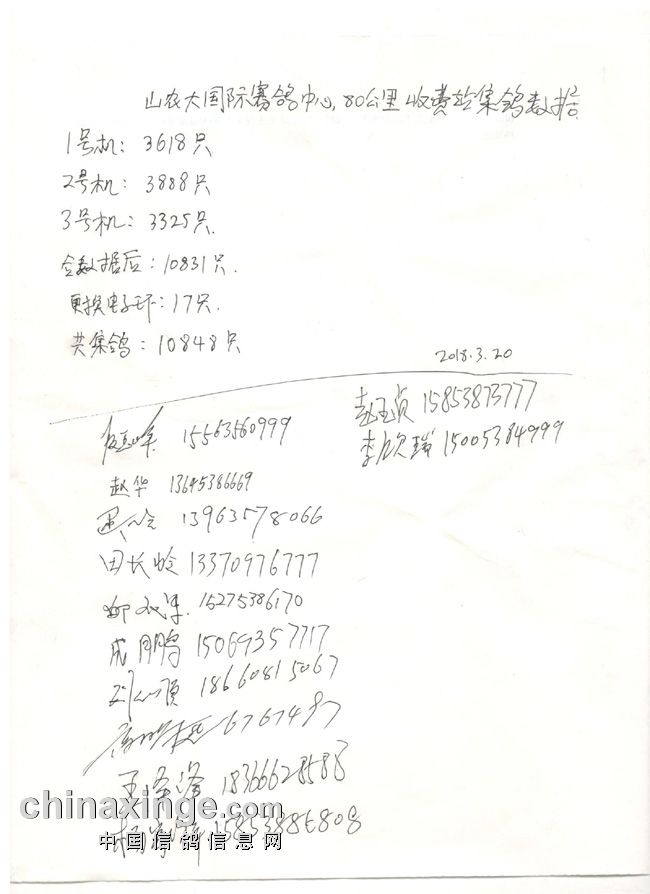 山农大国际赛鸽中心,80公里收费站集鸽数据
1号机:3618只
2号机:3888只
3号机:3325只.
合数据后:10831只.
更换电子环:17只.
共集鸽:10848只
2018.3.20
赵玉贞 15853873777
李欣瑞 15005384999
15563560999
赵华 13645386669
13963578066
田长岭 13370976777
15275386170
成月鹏 15069357717
18660815067
6767497
18366628588
chinaxinge.com
中国信鸽信息网